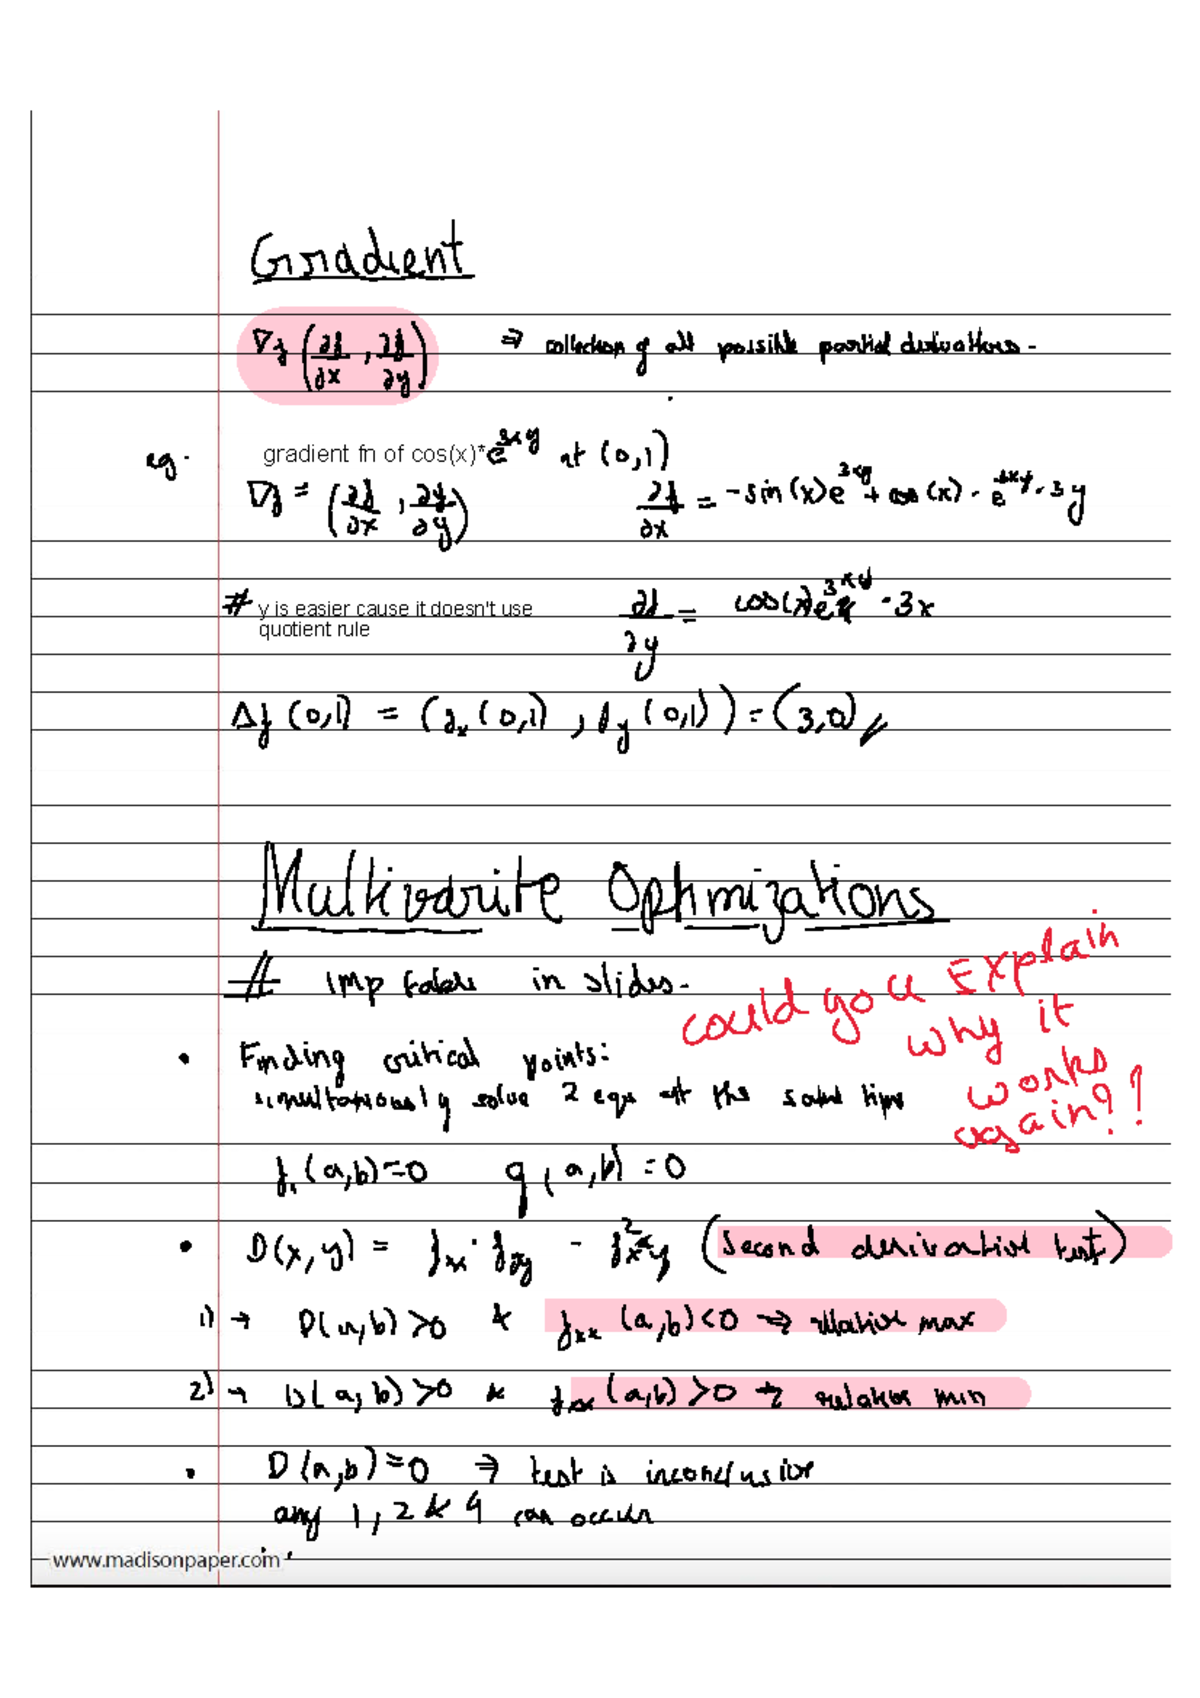 Gradient
∇f (∂f/∂x , ∂f/∂y) ⇒ collection of all possible partial derivations.
eg. gradient fn of cos(x)*e^3xy at (0,1)
∇f = (∂f/∂x , ∂y/∂y) ∂f/∂x = -sin(x)e^3xy + cos(x) · e^3xy · 3y
# y is easier cause it doesn't use
quotient rule
∂f/∂y = cos(x)e^3xy · 3x
Δf (0,1) = (fx (0,1) , fy (0,1)) = (3,0)
Multivarite Optimizations
# Imp table in slides.
could you Explain
why it
works
again??
• Finding critical points:
simultaneously solve 2 eqn at the same time
f, (a,b)=0 g, (a,b) = 0
• D(x,y) = fxx · fyy - f²xy (second derivative test)
1) → D(a,b) >0 & fxx (a,b) <0 → relative max
2) → D(a,b) >0 & fxx (a,b) >0 → relative min
• D(a,b)=0 → test is inconclusive
any 1, 2 & 4 can occur
www.madisonpaper.com